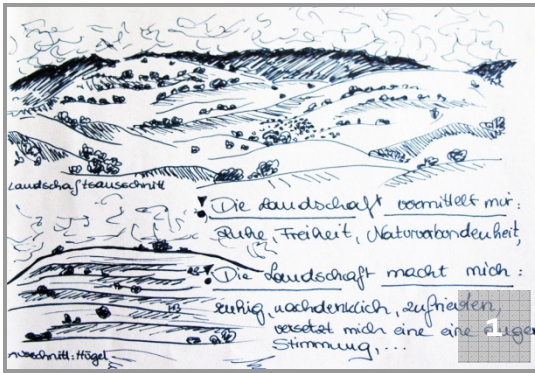 Landschaftsausschnitt
Die Landschaft vermittelt mir:
Ruhe, Freiheit, Naturverbundenheit,
Die Landschaft macht mich:
ruhig, nachdenklich, zufrieden,
versetzt mich eine eine
Stimmung,...
Ausschnitt: Hügel
1